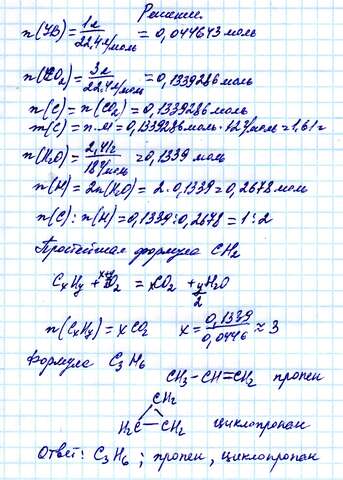 Решение.
n(УВ) = 1л / 22,4л/моль = 0,044643 моль
n(CO₂) = 3л / 22,4л/моль = 0,1339286 моль
n(C) = n(CO₂) = 0,1339286 моль
m(C) = n·M = 0,1339286 моль · 12 г/моль = 1,61 г
n(H₂O) = 2,41г / 18 г/моль = 0,1339 моль
n(H) = 2n(H₂O) = 2·0,1339 = 0,2678 моль
n(C) : n(H) = 0,1339 : 0,2678 = 1 : 2
Простейшая формула CH₂
CxHy + O₂ = xCO₂ + y/2 H₂O
n(CxHy) = xCO₂ x = 0,1339 / 0,0446 ≈ 3
Формула C₃H₆
CH₃ – CH = CH₂ пропен
CH₂
H₂C – CH₂ циклопропан
Ответ: C₃H₆ ; пропен, циклопропан